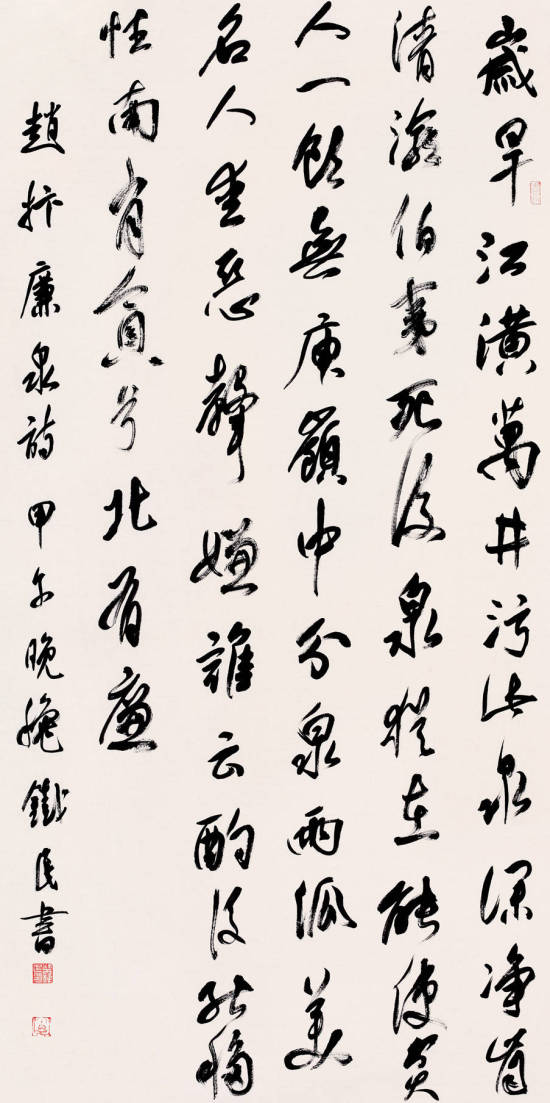 歲旱江潢萬井污此泉深淨肯
清渝伯夷死後泉猶在能使貪
人一飲無庾嶺中分泉兩派美
名人愛惡聲嫌誰云酌後能移
性南有貪兮北有廉
趙抃廉泉詩甲午晚穐鐵民書